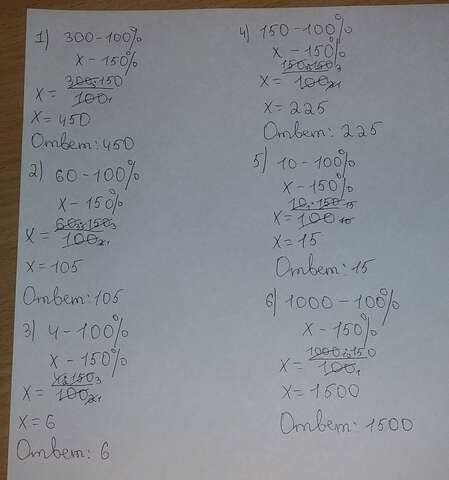 1) 300 - 100%
x - 150%
x = 300 · 150 / 100
x = 450
Ответ: 450
2) 60 - 100%
x - 150%
x = 60 · 150 / 100
x = 105
Ответ: 105
3) 4 - 100%
x - 150%
x = 4 · 150 / 100
x = 6
Ответ: 6
4) 150 - 100%
x - 150%
x = 150 · 150 / 100
x = 225
Ответ: 225
5) 10 - 100%
x - 150%
x = 10 · 150 / 100
x = 15
Ответ: 15
6) 1000 - 100%
x - 150%
x = 1000 · 150 / 100
x = 1500
Ответ: 1500